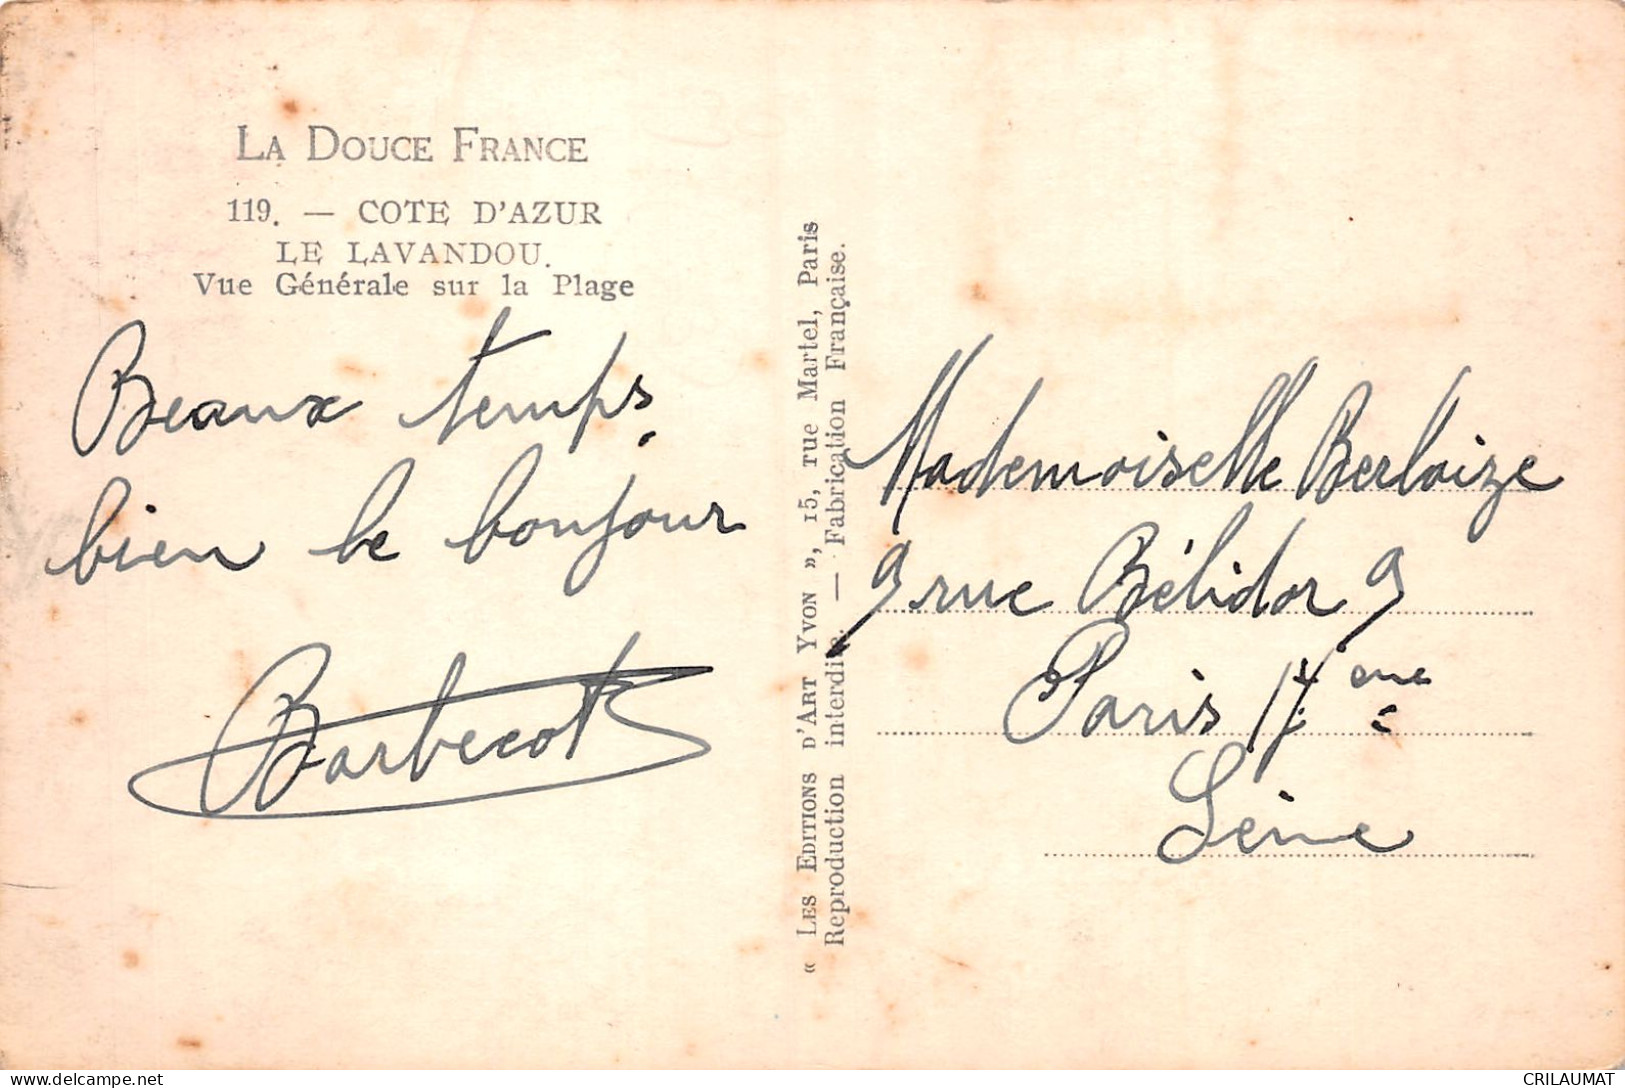 LA DOUCE FRANCE
119. — COTE D'AZUR
LE LAVANDOU.
Vue Générale sur la Plage
Beaux temps.
bien le bonjour
Barbecot
« LES EDITIONS D'ART YVON », 15, rue Martel, Paris
Reproduction interdite. — Fabrication Française.
Mademoiselle Berloize
9 rue Bélidor 9
Paris 17 eme
Seine
delcampe.net
CRILAUMAT